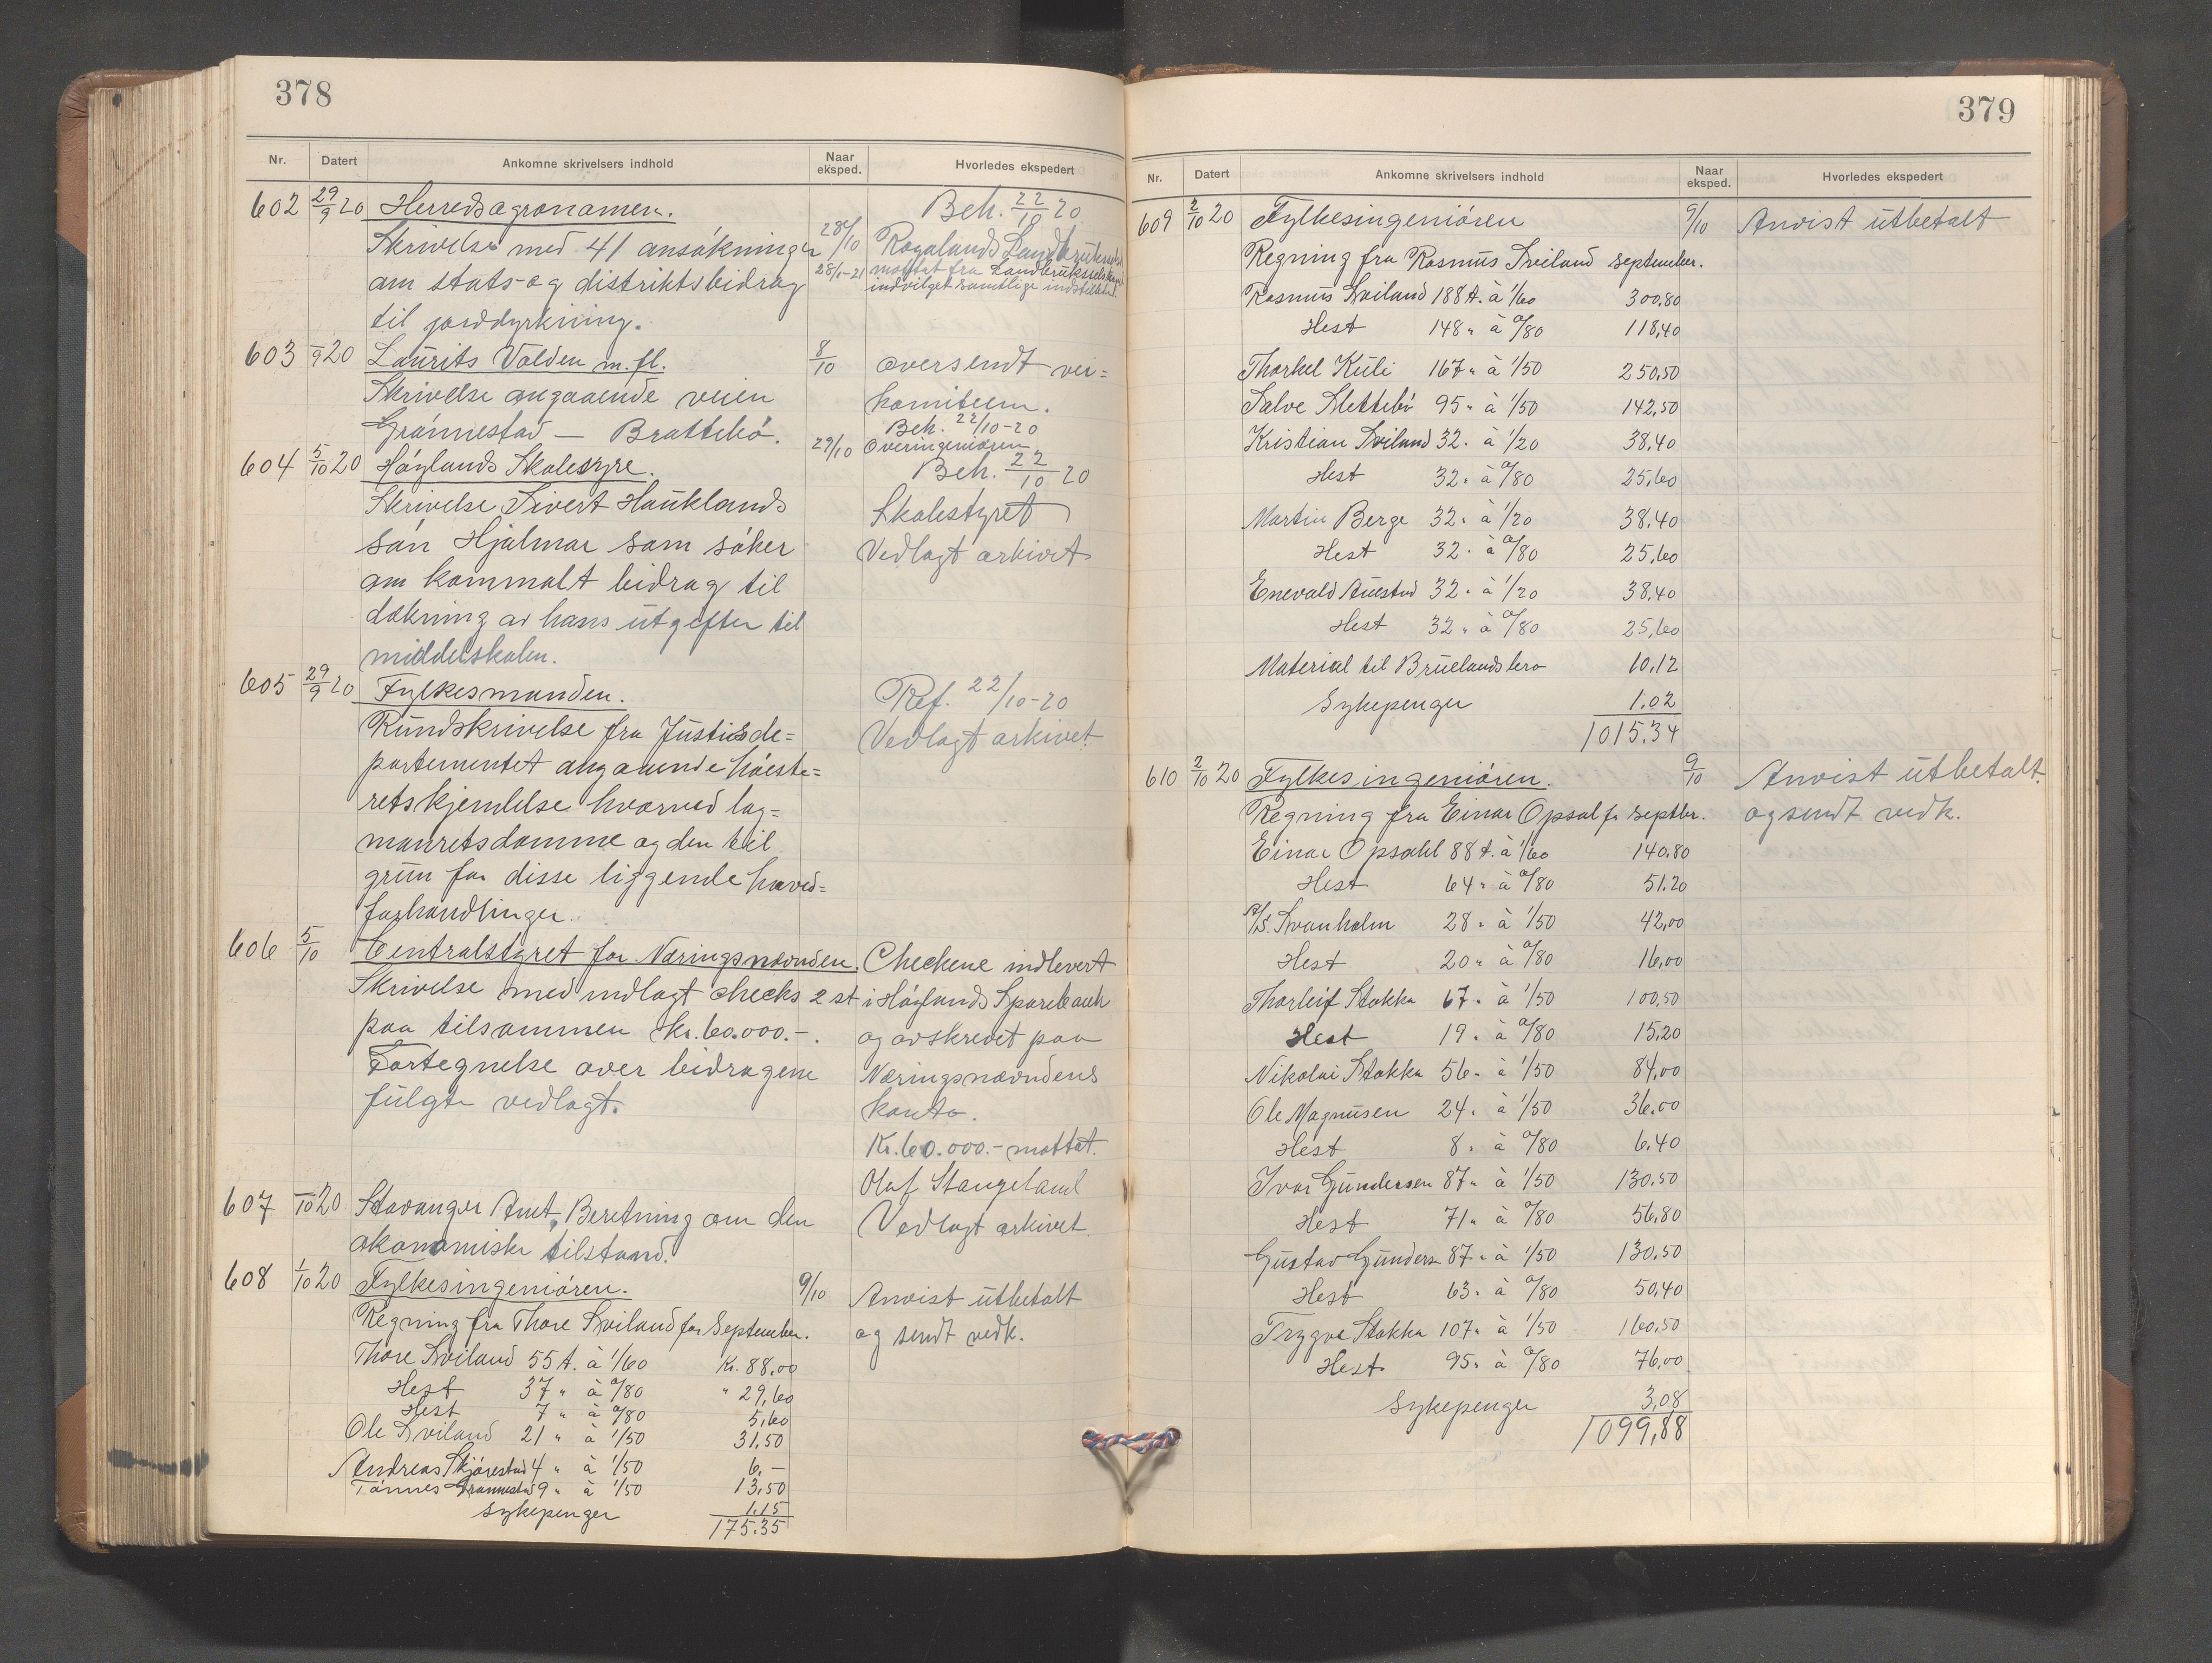 378
Nr. Datert Ankomne skrivelsers indhold Naar eksped. Hvorledes ekspedert
602 29/9 20 Herredsagronomen. Beh. 22/10 20
Skrivelse med 41 ansökninger 28/10 Rogalands Landbruksselsk.
om stats- og distriktsbidrag 28/1-21 mottat fra Landbruksselskapet
indvilget samtlige indstillede.
til jorddyrkning.
603 /9 20 Laurits Valden m. fl. 8/10 oversendt vei=
Skrivelse angaaende veien komiteen.
Beh. 22/10-20
Grönnestad — Brattebö. 29/10 Overingeniøren
604 5/10 20 Höylands Skolestyre. Beh. 22/10 20
Skrivelse Sivert Hauklands Skolestyret
sön Hjalmar som söker Vedlagt arkivet
om kommalt bidrag til
dækning av hans utgifter til
middelskolen.
605 29/9 20 Fylkesmanden. Ref. 22/10-20
Rundskrivelse fra Justisde= Vedlagt arkivet.
partementet angaaende höieste=
retskjendelse hvorved lag=
manretsdomme og den til
grun for disse liggende hoved=
forhandlinger.
606 5/10 Centralstyret for Næringsnævnden. Checkene indlevert
Skrivelse med indlagt checks 2 st i Höylands Sparebank
paa tilsammen kr. 60.000.-. og avskrevet paa
Fortegnelse over bidragene Næringsnævndens
fulgte vedlagt. konto.
Kr. 60.000.- mottat.
Olaf Stangeland
607 /10 20 Stavanger Amt, Beretning om den Vedlagt arkivet.
økonomiske tilstand.
608 1/10 20 Fylkesingeniören. 9/10 Anvist utbetalt
Regning fra Thore Sviland for September. og sendt vedk.
Thore Sviland 55 t. à 1/60 Kr. 88,00
Hest 37 " à 0/80 " 29,60
Hest 7 " à 0/80 5,60
Ole Sviland 21 " à 1/50 31,50
Andreas Skjörestad 4 " à 1/50 6,-
Tönnes Grönnestad 9 " à 1/50 13,50
Sykepenger 1,15
175.35
379
Nr. Datert Ankomne skrivelsers indhold Naar eksped. Hvorledes ekspedert
609 2/10 20 Fylkesingeniören 9/10 Anvist utbetalt
Regning fra Rasmus Sviland september.
Rasmus Sviland 188 t. à 1/60 300,80
Hest 148 " à 0/80 118,40
Thorkel Kuli 167 " à 1/50 250,50
Salve Slettebö 95 " à 1/50 142,50
Kristian Sviland 32 " à 1/20 38,40
Hest 32 " à 0/80 25,60
Martin Berge 32 " à 1/20 38.40
Hest 32 " à 0/80 25,60
Enevald Auestad 32 " à 1/20 38.40
Hest 32 " à 0/80 25,60
Material til Bruelandsbro 10,12
Sykepenger 1.02
1015.34
610 2/10 20 Fylkesingeniören. 9/10 Anvist utbetalt
Regning fra Einar Opsal fr septbr. og sendt vedk.
Einar Opsahl 88 t. à 1/60 140.80
Hest 64 " à 0/80 51.20
A/S. Svanholm 28 " à 1/50 42,00
Hest 20 " à 0/80 16,00
Thorleif Stokka 67 " à 1/50 100,50
Hest 19 " à 0/80 15,20
Nikolai Stokka 56 " à 1/50 84,00
Ole Magnusen 24 " à 1/50 36,00
Hest 8 " à 0/80 6.40
Ivar Gundersen 87 " à 1/50 130.50
Hest 71 " à 0/80 56,80
Gustav Gunders. 87 " à 1/50 130.50
Hest 63 " à 0/80 50,40
Trygve Stokka 107 " à 1/50 160,50
Hest 95 " à 0/80 76,00
Sykepenger 3,08
1099,88